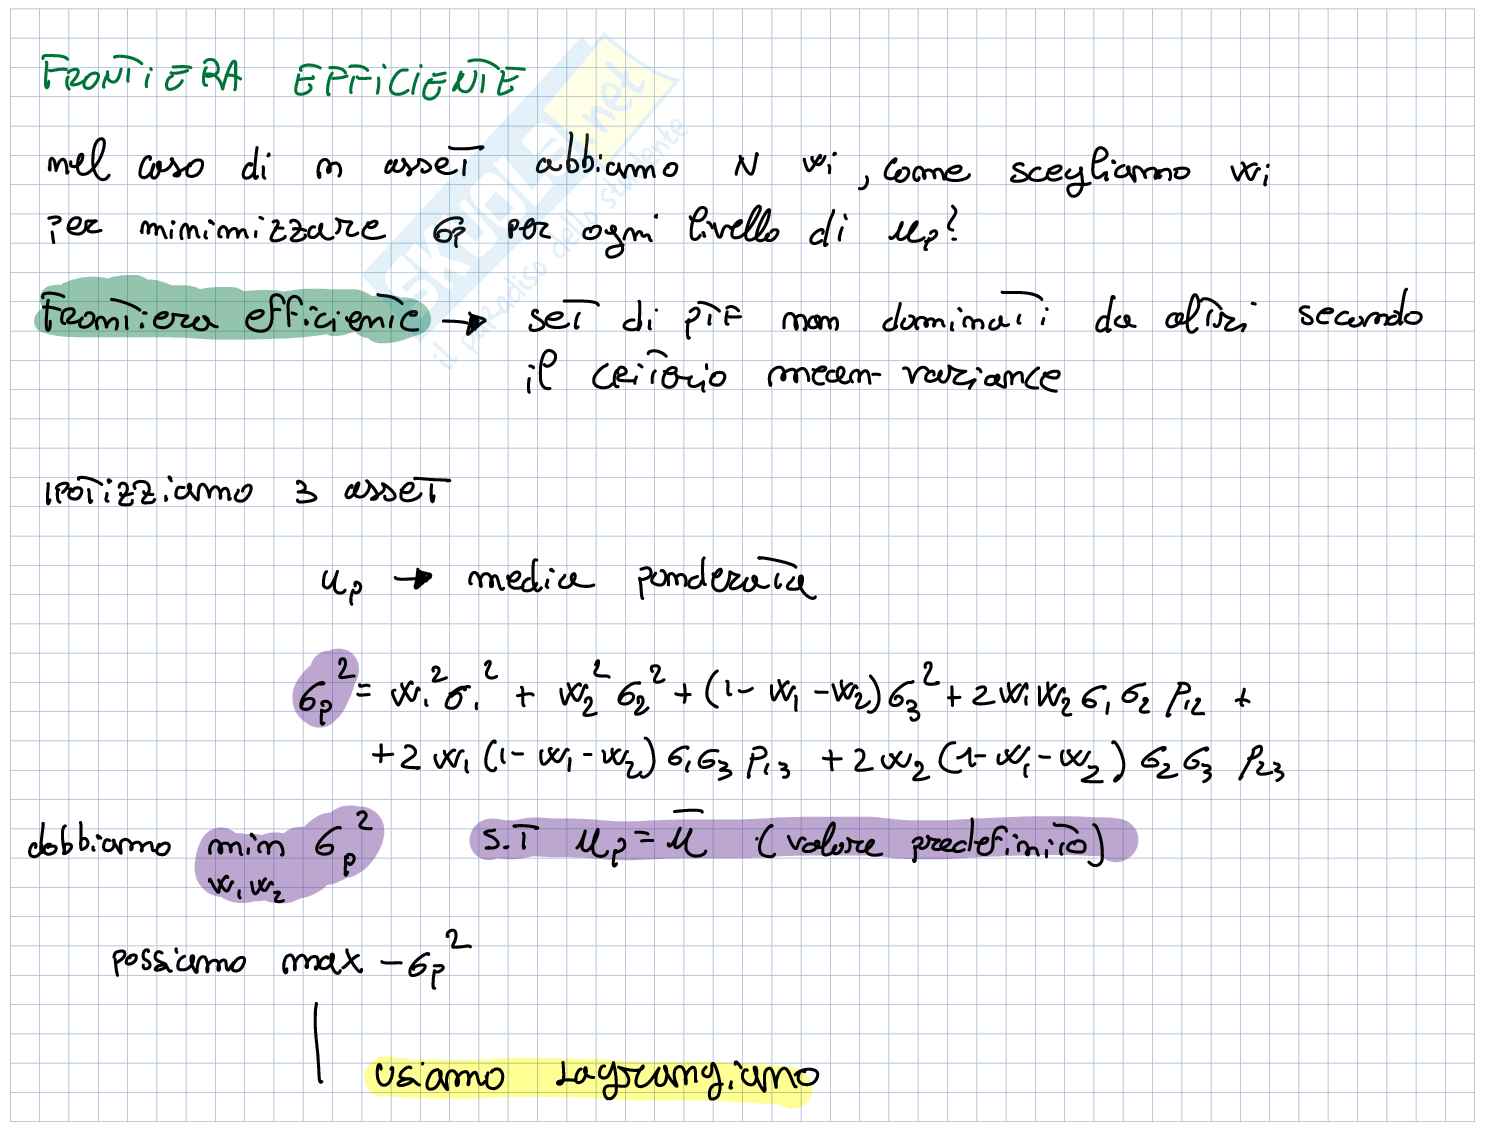 FRONTIERA EFFICIENTE
nel caso di n asset abbiamo N wi, come scegliamo wi
per minimizzare σp per ogni livello di μp?
Frontiera efficiente → set di ptf non dominati da altri secondo
il criterio mean-variance
ipotizziamo 3 asset
μp → media ponderata
σp² = w₁²σ₁² + w₂²σ₂² + (1-w₁-w₂)σ₃² + 2w₁w₂σ₁σ₂ρ₁₂ +
+2w₁(1-w₁-w₂)σ₁σ₃ρ₁₃ + 2w₂(1-w₁-w₂)σ₂σ₃ρ₂₃
dobbiamo min σp² s.t μp = μ̄ (valore predefinito)
w₁w₂
possiamo max -σp²
usiamo Lagrangiano
SKUOLA.net
il paradiso dello studente